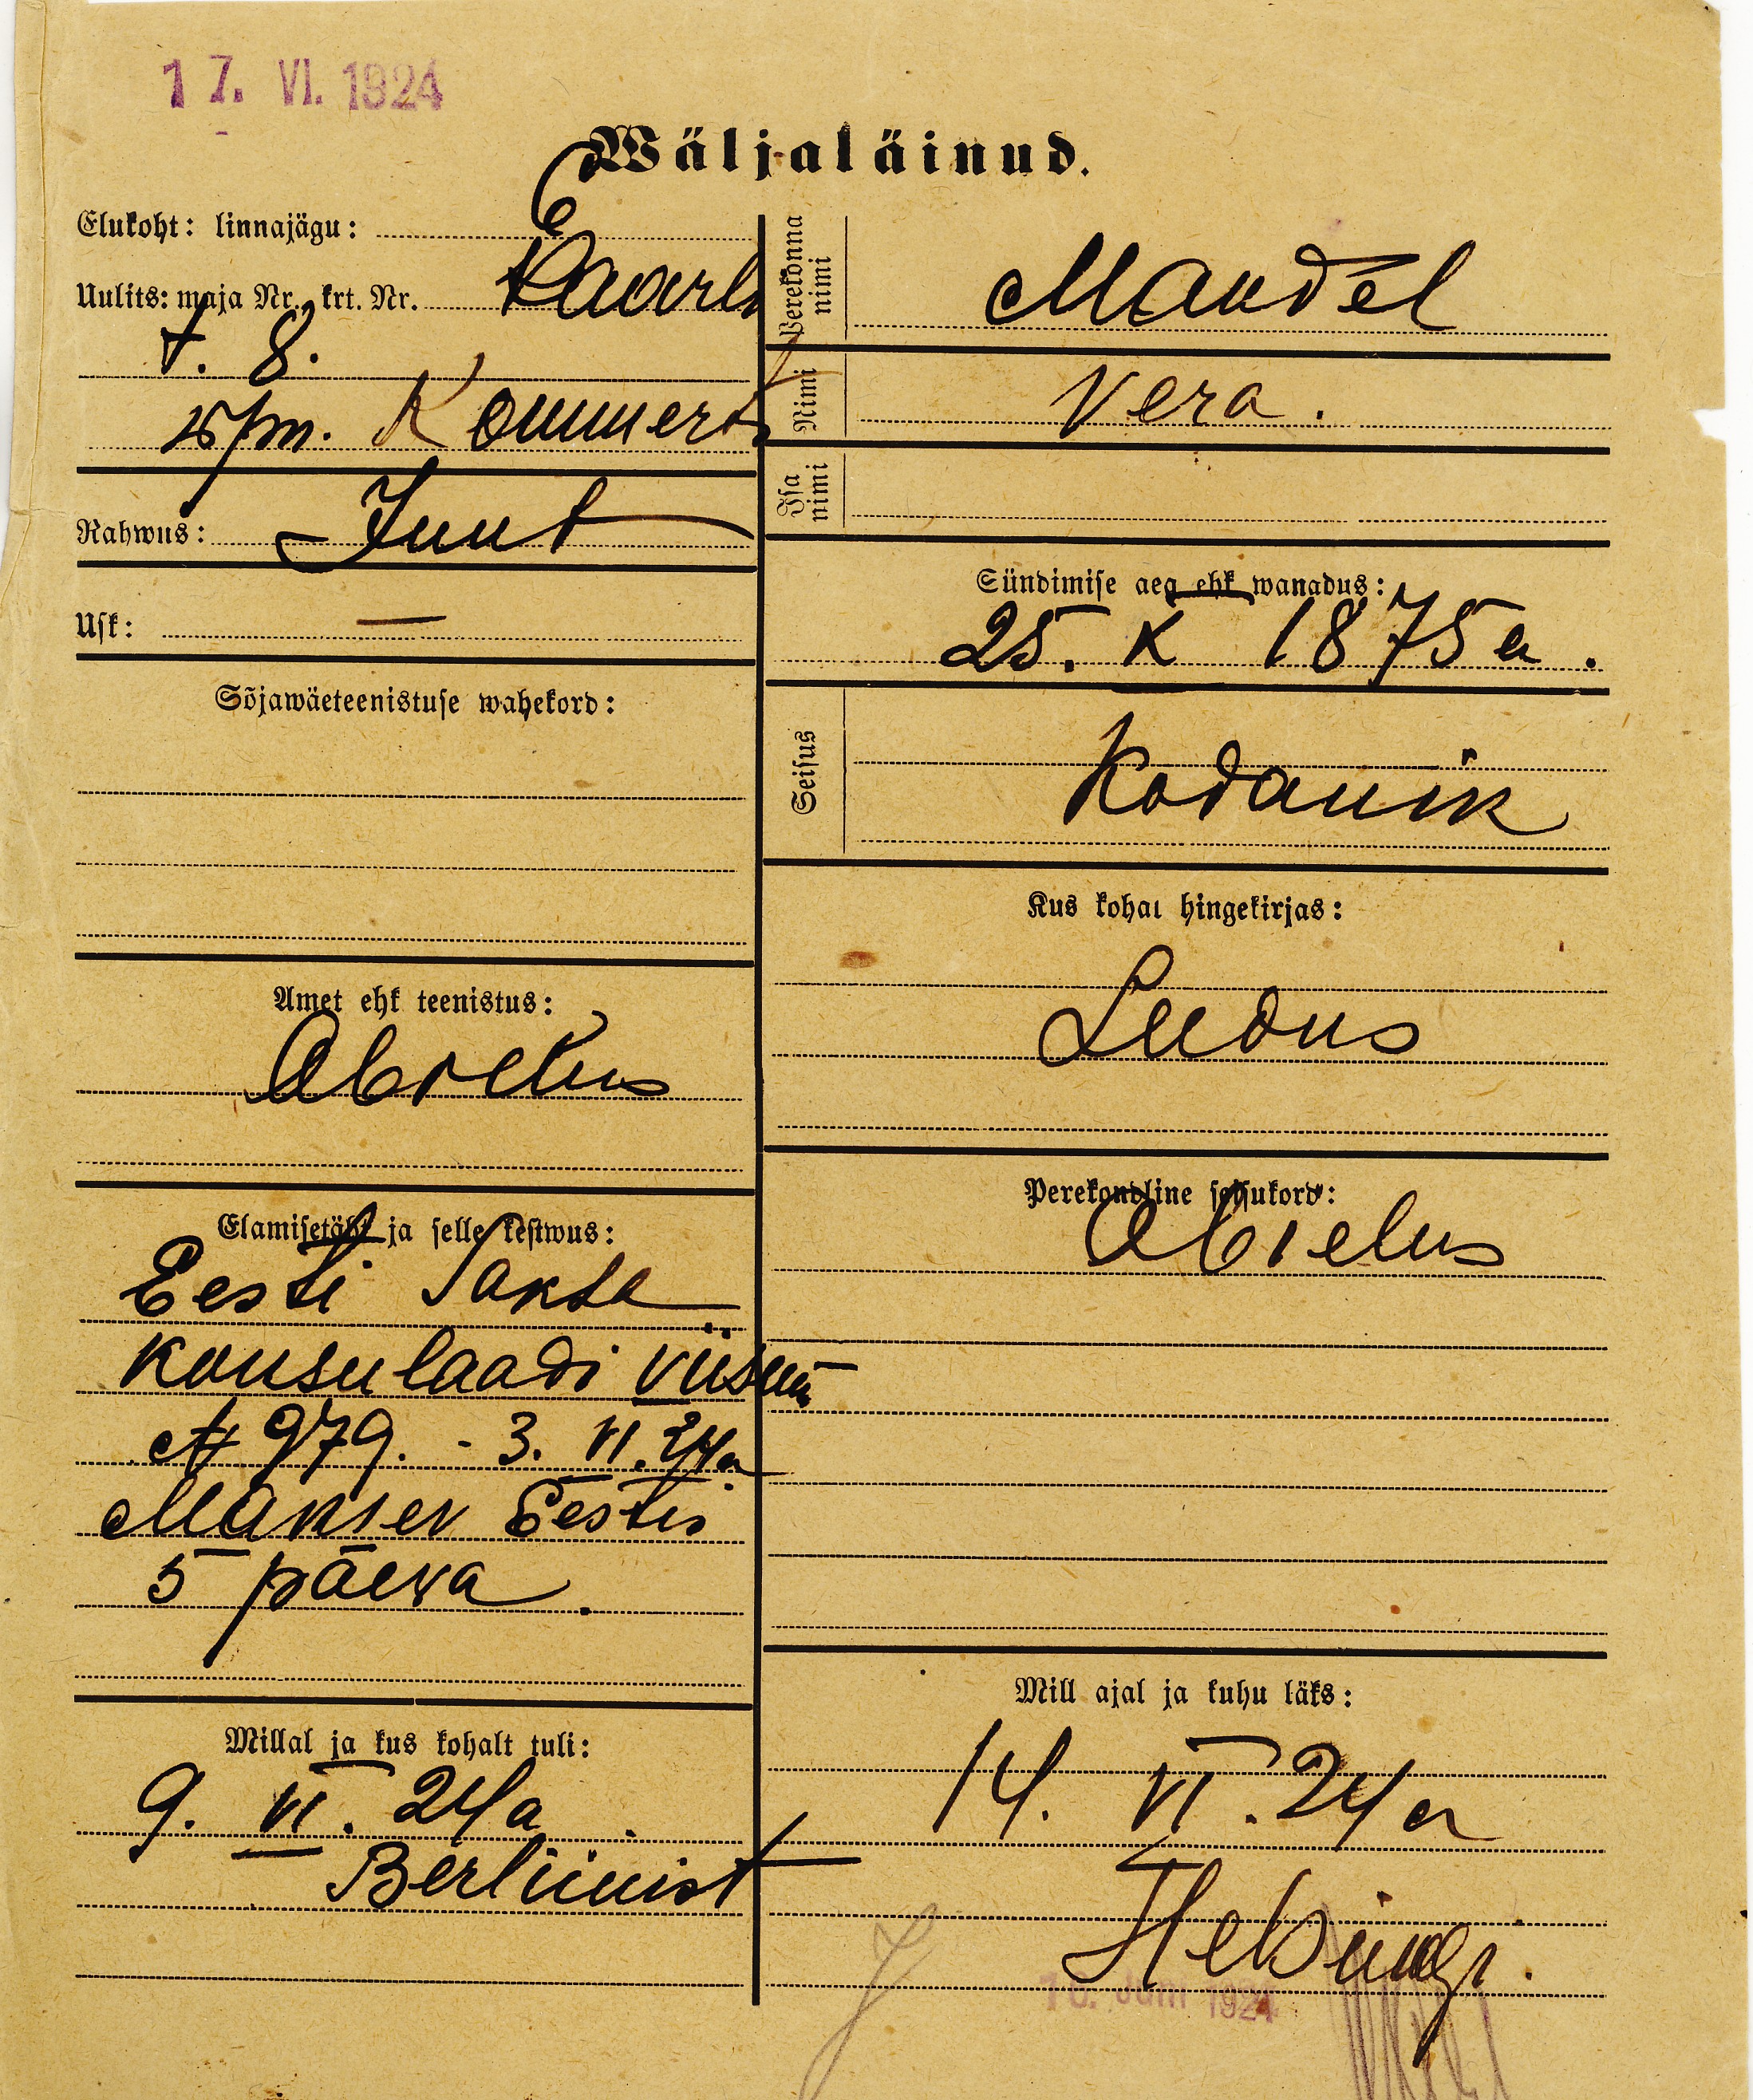 17. VI. 1924
Wäljaläinud.
Elukoht: linnajägu:
Uulits: maja Nr., krt. Nr.
t. 8.
Kommerts
Rahwus: Juut
Usk: —
Sõjawäeteenistuse wahekord:
Amet ehk teenistus:
Abielus
Elamisetäht ja selle kestwus:
Eesti Saksa
Konsulaadi viisum
№ 979. - 3. VI. 24a
Maksev Eestis
5 päewa.
Millal ja kus kohalt tuli:
9. VI. 24a.
Berliinist
Perekonna nimi
Mandel
Nimi
Vera.
Isa nimi
Sündimise aeg ehk wanadus:
25. X 1875 a.
Seisus
Kodanik
Kus kohal hingekirjas:
Leedus
Perekondline seisukord:
Abielus
Mill ajal ja kuhu läks:
14. VI. 24 a
Helsingi.
Juni 1924